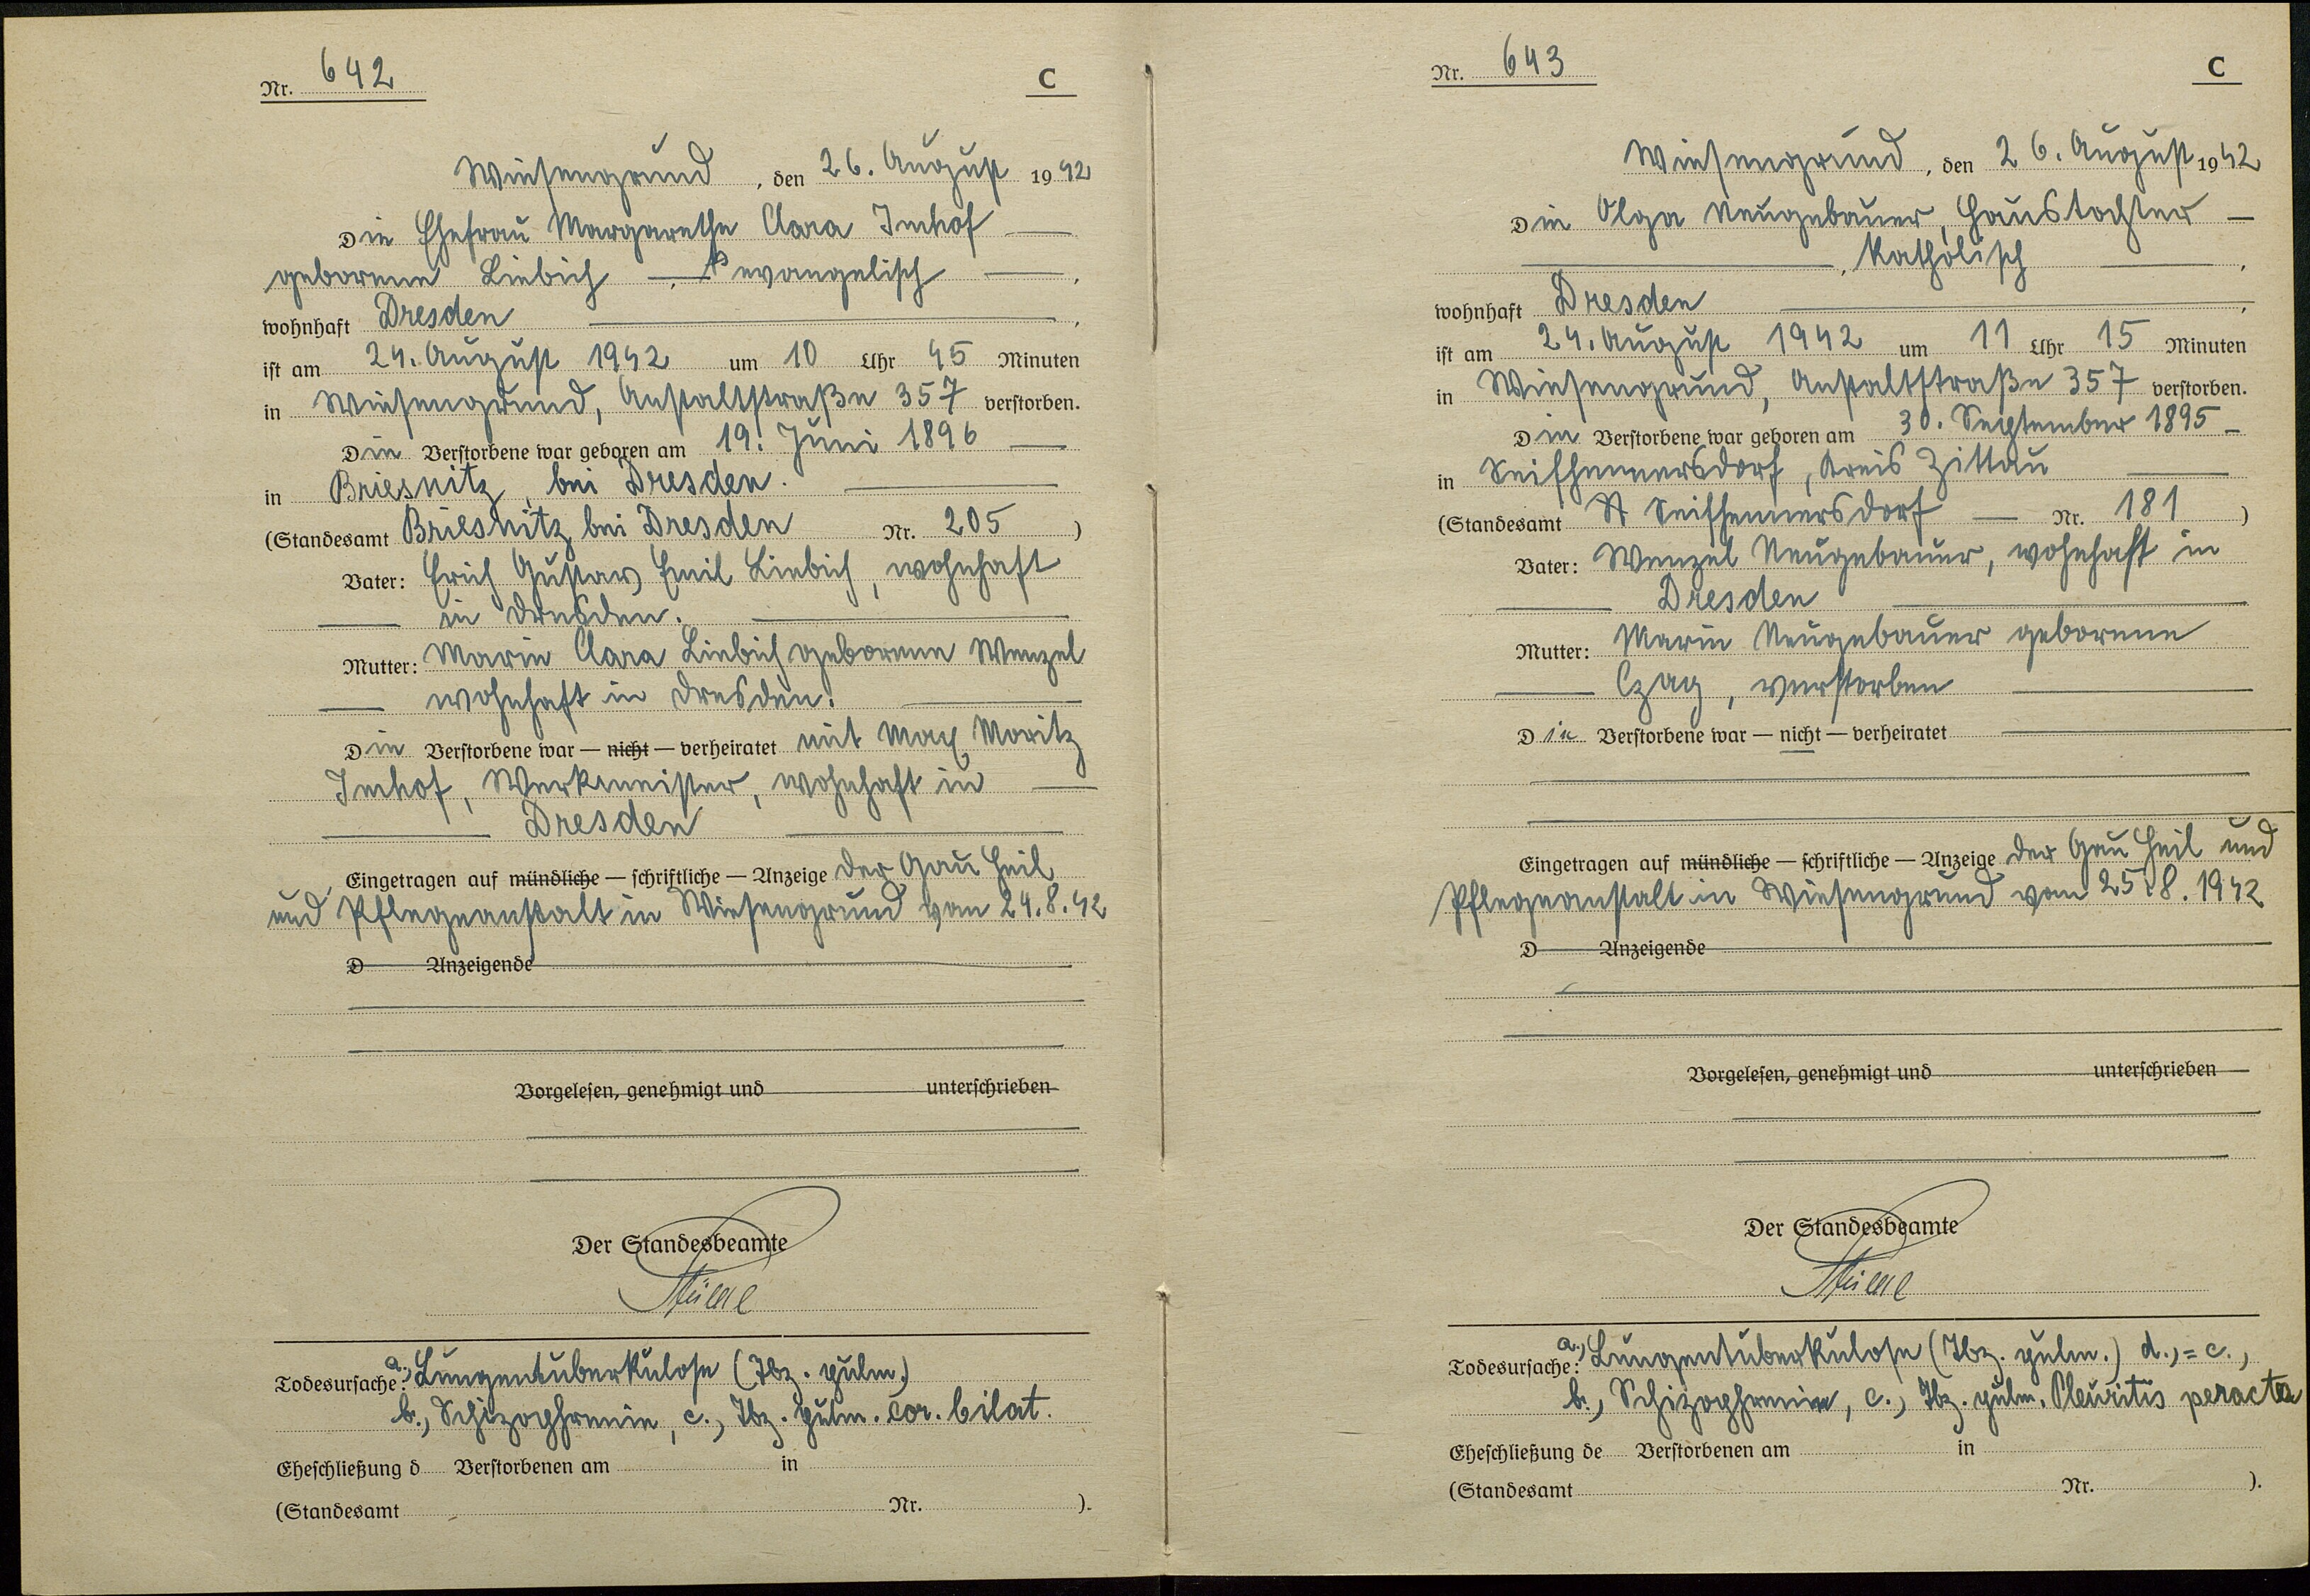 Nr. 642 C
Wiesengrund, den 26. August 1942
Die Ehefrau Margarethe Clara Imhof —
geborene Liebich —, evangelisch —,
wohnhaft Dresden —,
ist am 24. August 1942 um 10 Uhr 45 Minuten
in Wiesengrund, Anstaltstraße 357 verstorben.
Die Verstorbene war geboren am 19. Juni 1896 —
in Briesnitz, bei Dresden. —
(Standesamt Briesnitz bei Dresden Nr. 205)
Vater: Erich Gustav Emil Liebich, wohnhaft
— in Dresden. —
Mutter: Marie Clara Liebich geborene Wenzel
— wohnhaft in Dresden. —
Die Verstorbene war — nicht — verheiratet mit Max Moritz
Imhof, Werkmeister, wohnhaft in —
— Dresden —
Eingetragen auf mündliche — schriftliche — Anzeige der Gau Heil
und Pflegeanstalt in Wiesengrund vom 24.8.42
D Anzeigende
Vorgelesen, genehmigt und unterschrieben
Der Standesbeamte
Todesursache: a., Lungentuberkulose (Tbz. pulm.)
b., Schizophrenie, c., Tbz. pulm. cor. bilat.
Eheschließung d Verstorbenen am in
(Standesamt Nr. ).
Nr. 643 C
Wiesengrund, den 26. August 1942
Die Olga Neugebauer, Haustochter —
—, katholisch —,
wohnhaft Dresden —,
ist am 24. August 1942 um 11 Uhr 15 Minuten
in Wiesengrund, Anstaltstraße 357 verstorben.
Die Verstorbene war geboren am 30. September 1895 —
in Seifhennersdorf, Kreis Zittau —
(Standesamt St Seifhennersdorf — Nr. 181)
Vater: Wenzel Neugebauer, wohnhaft in
— Dresden —
Mutter: Marie Neugebauer geborene
— Czap, verstorben —
Die Verstorbene war — nicht — verheiratet —
Eingetragen auf mündliche — schriftliche — Anzeige der Gau Heil und
Pflegeanstalt in Wiesengrund vom 25.8.1942
D Anzeigende
Vorgelesen, genehmigt und unterschrieben
Der Standesbeamte
Todesursache: a., Lungentuberkulose (Tbz. pulm.) d., = c.,
b., Schizophrenie, c., Tbz. pulm. Pleuritis peracta
Eheschließung de Verstorbenen am in
(Standesamt Nr. ).